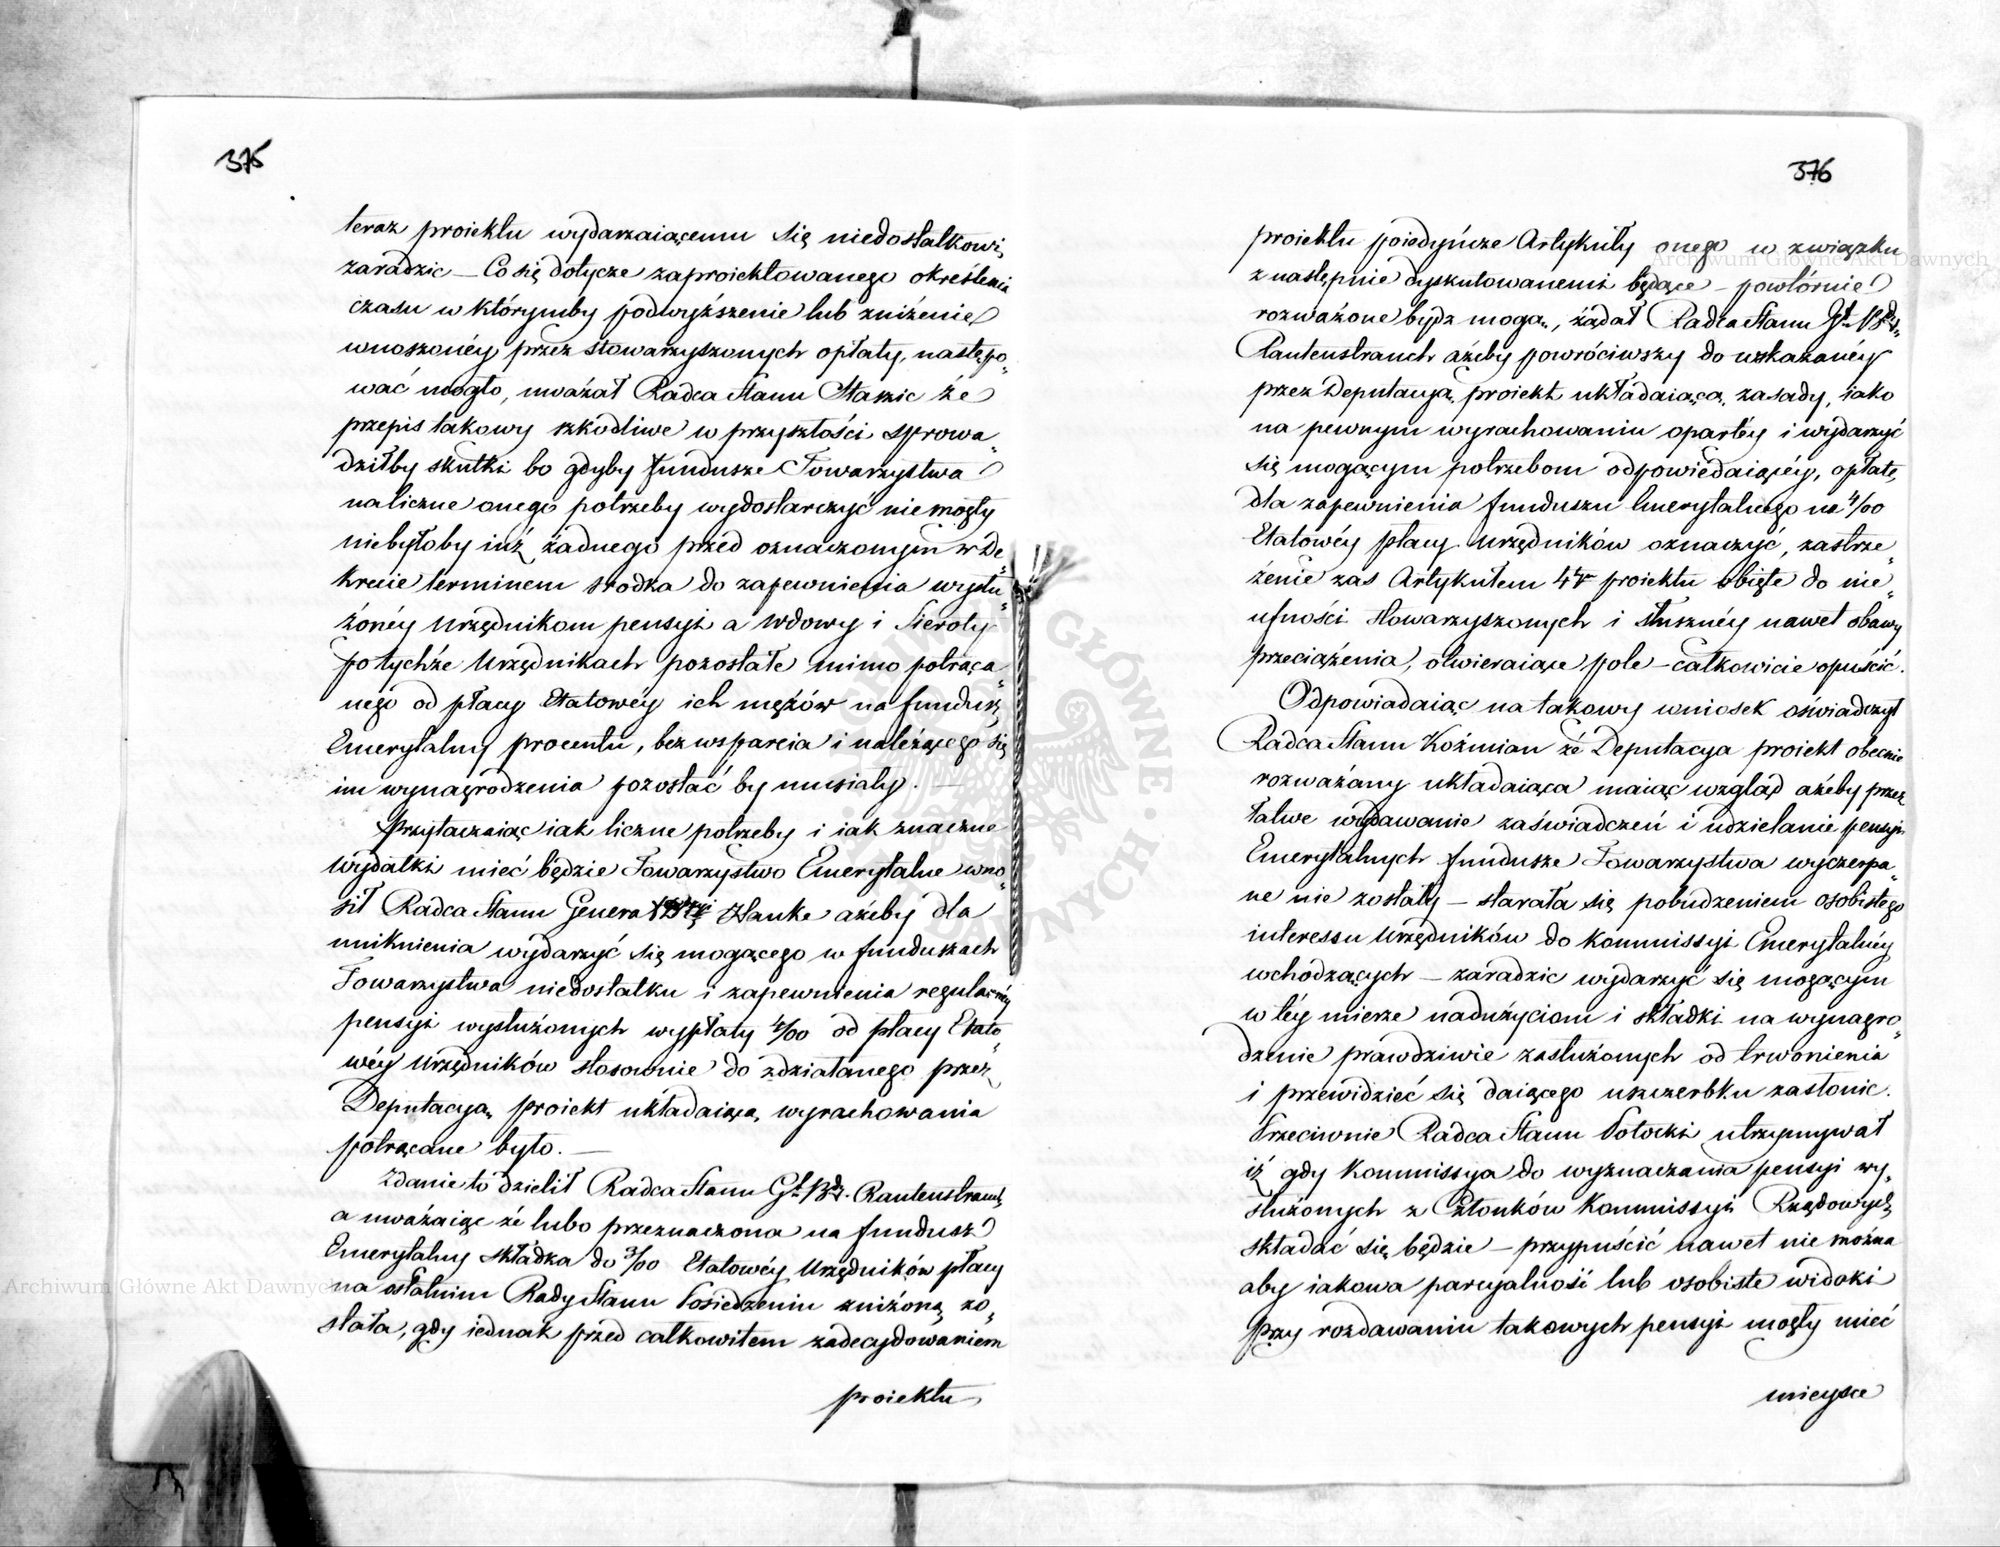 375
teraz proiektu wydarzaiącemu się niedostatkowi
zaradzic — Co się dotycze zaproiektowanego określenia
czasu w którymby podwyższenie lub zniżenie
wnoszonéy przez stowarzyszonych opłaty, następo„
wać mogło, uważał Radca Stanu Staszic że
przepis takowy szkodliwe w przyszłości sprowa„
dziłby skutki bo gdyby fundusze Towarzystwa
na liczne onego potrzeby wydostarczyć nie mogły
niebyłoby iuż żadnego przed oznaczonym w De„
krecie terminem srodka do zapewnienia wysłu„
żonéy Urzędnikom pensyi a Wdowy i Sieroty
po tychże Urzędnikach pozostałe mimo potrąca„
nego od płacy Etatowéy ich mężów na fundusz
Emerytalny procentu, bez wsparcia i należącego się
im wynagrodzenia pozostać by musiały. —
Przytaczaiąc iak liczne potrzeby i iak znaczne
wydatki mieć będzie Towarzystwo Emerytalne wno„
sił Radca Stanu Genera Hauke ażeby dla
uniknienia wydarzyć się mogącego w funduszach
Towarzystwa niedostatku i zapewnienia regularnéy
pensyi wysłużonych wypłaty 4/00 od płacy Etato„
wéy Urzędników stosownie do zdziałanego przez
Deputacyą proiekt układaiącą wyrachowania
potrącane było. —
Zdanie to dzielił Radca Stanu Gł Bdy. Rautenstrauch
a uważaiąc że lubo przeznaczona na fundusz
Emerytalny składka do 3/00 Etatowéy Urzędników płacy
na ostatnim Rady Stanu Posiedzeniu zniżoną zo„
stała, gdy iednak przed całkowitem zadecydowaniem
proiektu
376
proiektu poiedyńcze Artykuły onego w związku
z następnie dyskutowanemi będące — powtórnie
rozważone bydź mogą, żądał Radca Stanu Gł Bdy
Rautenstrauch ażeby powróciwszy do wskazanéy
przez Deputacyą proiekt układaiącą zasady, iako
na pewnym wyrachowaniu opartéy i wydarzyć
się mogącym potrzebom odpowiedaiącéy, opłatę
dla zapewnienia funduszu Emerytalnego na 4/00
Etatowéy płacy Urzędników oznaczyć, zastrze„
żenie zas Artykułem 4tr proiektu obięte do nie„
ufności stowarzyszonych i słusznéy nawet obawy
przeciążenia, otwieraiące pole — całkowicie opuścić.
Odpowiadaiąc na takowy wniosek oświadczył
Radca Stanu Koźmian że Deputacya proiekt obecnie
rozważany układaiąca maiąc wzgląd ażeby przez
łatwe wydawanie zaświadczeń i udzielanie pensyi
Emerytalnych fundusze Towarzystwa wyczerpa„
ne nie zostały — starała się pobudzeniem osobistego
interessu Urzędników do Kommissyi Emerytalnéy
wchodzących — zaradzic wydarzyć się mogącym
w téy mierze nadużyciom i składki na wynagro„
dzenie prawdziwie zasłużonych od trwonienia
i przewidzieć się daiącego uszczerbku zasłonic.
Przeciwnie Radca Stanu Potocki utrzymywał
iż gdy Kommissya do wyznaczania pensyi wy„
służonych z Członków Kommissyi Rządowych
składać się będzie — przypuścić nawet nie można
aby iakowa parcyalność lub osobiste widoki
przy rozdawaniu takowych pensyi mogły mieć
mieysce
Archiwum Główne Akt Dawnych
Archiwum Główne Akt Dawnych